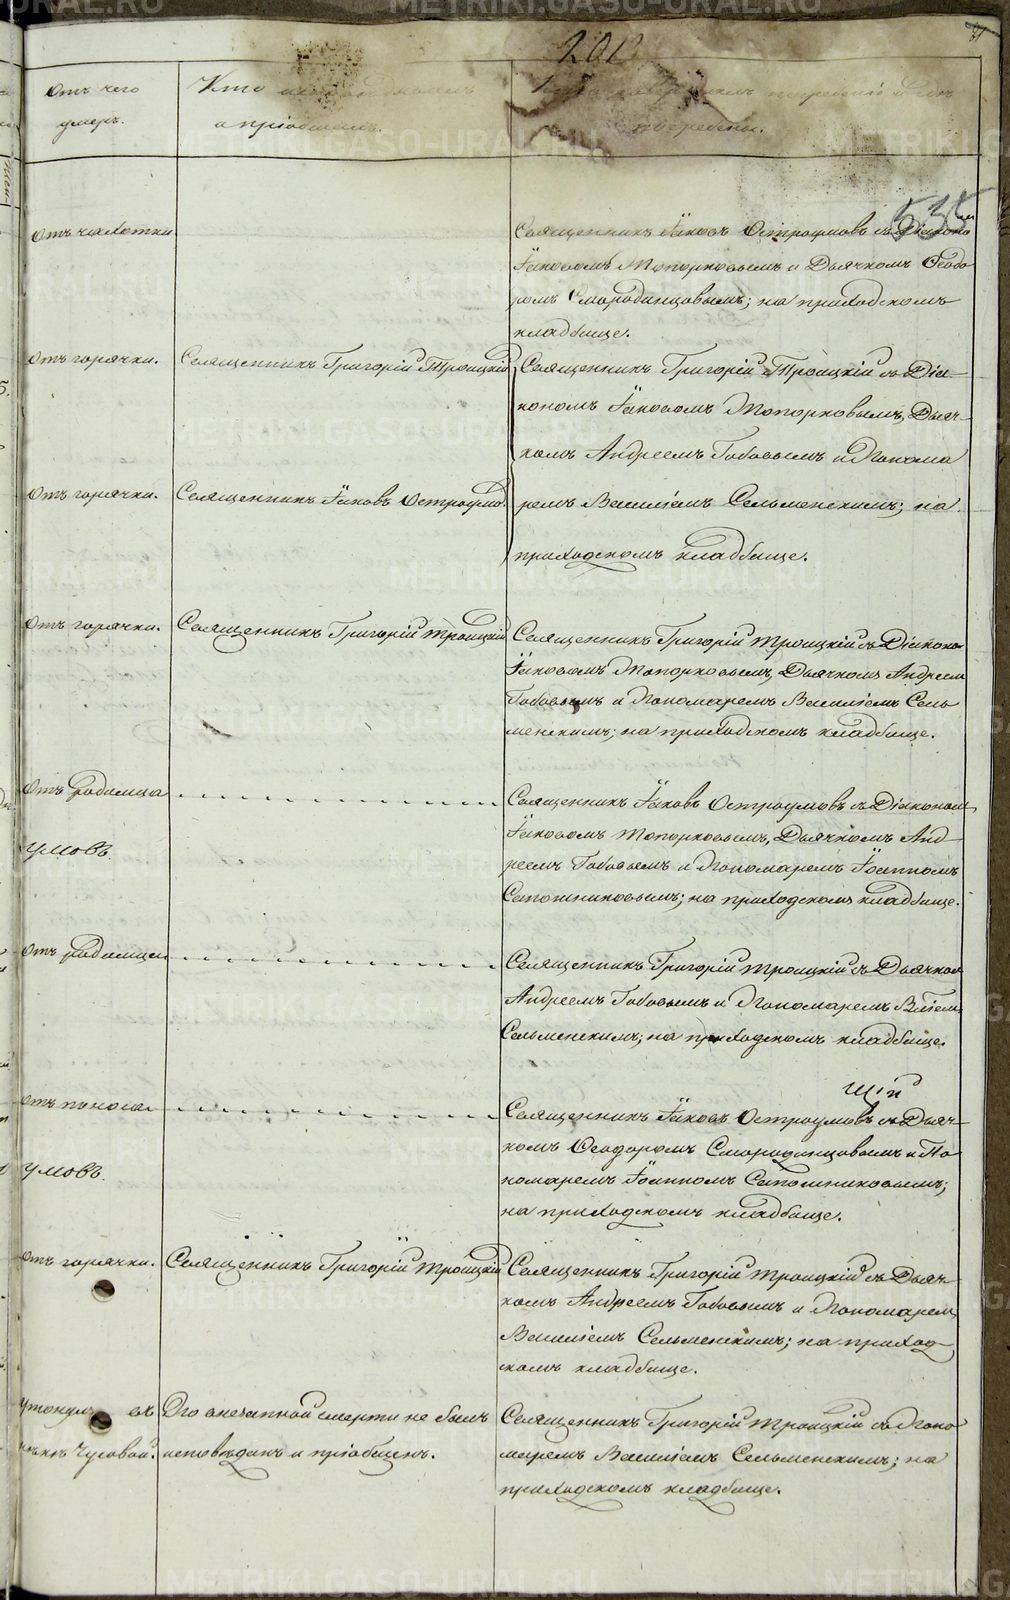 201
535
Отъ чего
умеръ.
Кто исповѣдывалъ
и пріобщалъ.
Кто совершалъ погребеніе и гдѣ
погребены.
Отъ чахотки
Священникъ Іаковъ Остроумовъ съ Діакономъ
Іаковомъ Топорковымъ и Дьячкомъ Ѳеодо
ромъ Смородинцовымъ; на приходскомъ
кладбище.
Отъ горячки.
Священникъ Григорій Троицкій
Священникъ Григорій Троицкій съ Діа-
кономъ Іаковомъ Топорковымъ, Дьяч-
комъ Андреемъ Бабовымъ и Понома
Отъ горячки.
Священникъ Іаковъ Остроумо
ремъ Василіемъ Сельменскимъ; на
приходскомъ кладбище.
Отъ горячки.
Священникъ Григорій Троицкій
Священникъ Григорій Троицкій съ Діакономъ
Іаковомъ Топорковымъ, Дьячкомъ Андреем
Бабовымъ и Пономаремъ Василіемъ Сель
менскимъ; на приходскомъ кладбище.
Отъ родимца
Священникъ Іаковъ Остроумовъ съ Діакономъ
Іаковомъ Топорковымъ, Дьячкомъ Анд
умовъ.
реемъ Бабовымъ и Пономаремъ Іоанномъ
Сапожниковымъ; на приходскомъ кладбище.
Отъ родимца
Священникъ Григорій Троицкій съ Дьячкомъ
Андреемъ Бабовымъ и Пономаремъ Вліемъ
Сельменскимъ; на приходскомъ кладбище.
Отъ поноса
Священникъ Іаковъ Остроумовъ съ Дьяч-
комъ Ѳеодоромъ Смородинцовымъ и По
умовъ.
номаремъ Іоанномъ Сапожниковымъ;
на приходскомъ кладбище.
Отъ горячки.
Священникъ Григорій Троицкій
Священникъ Григорій Троицкій съ Дьяч
комъ Андреемъ Бабовымъ и Пономарем
Василіемъ Сельменскимъ; на приход
скомъ кладбище.
Утонулъ въ
рѣкѣ Чусовой.
По внезапной смерти не былъ
исповѣданъ и пріобщенъ.
Священникъ Григорій Троицкій съ Поно
маремъ Василіемъ Сельменскимъ; на
приходскомъ кладбище.
METRIKI.GASO-URAL.RU